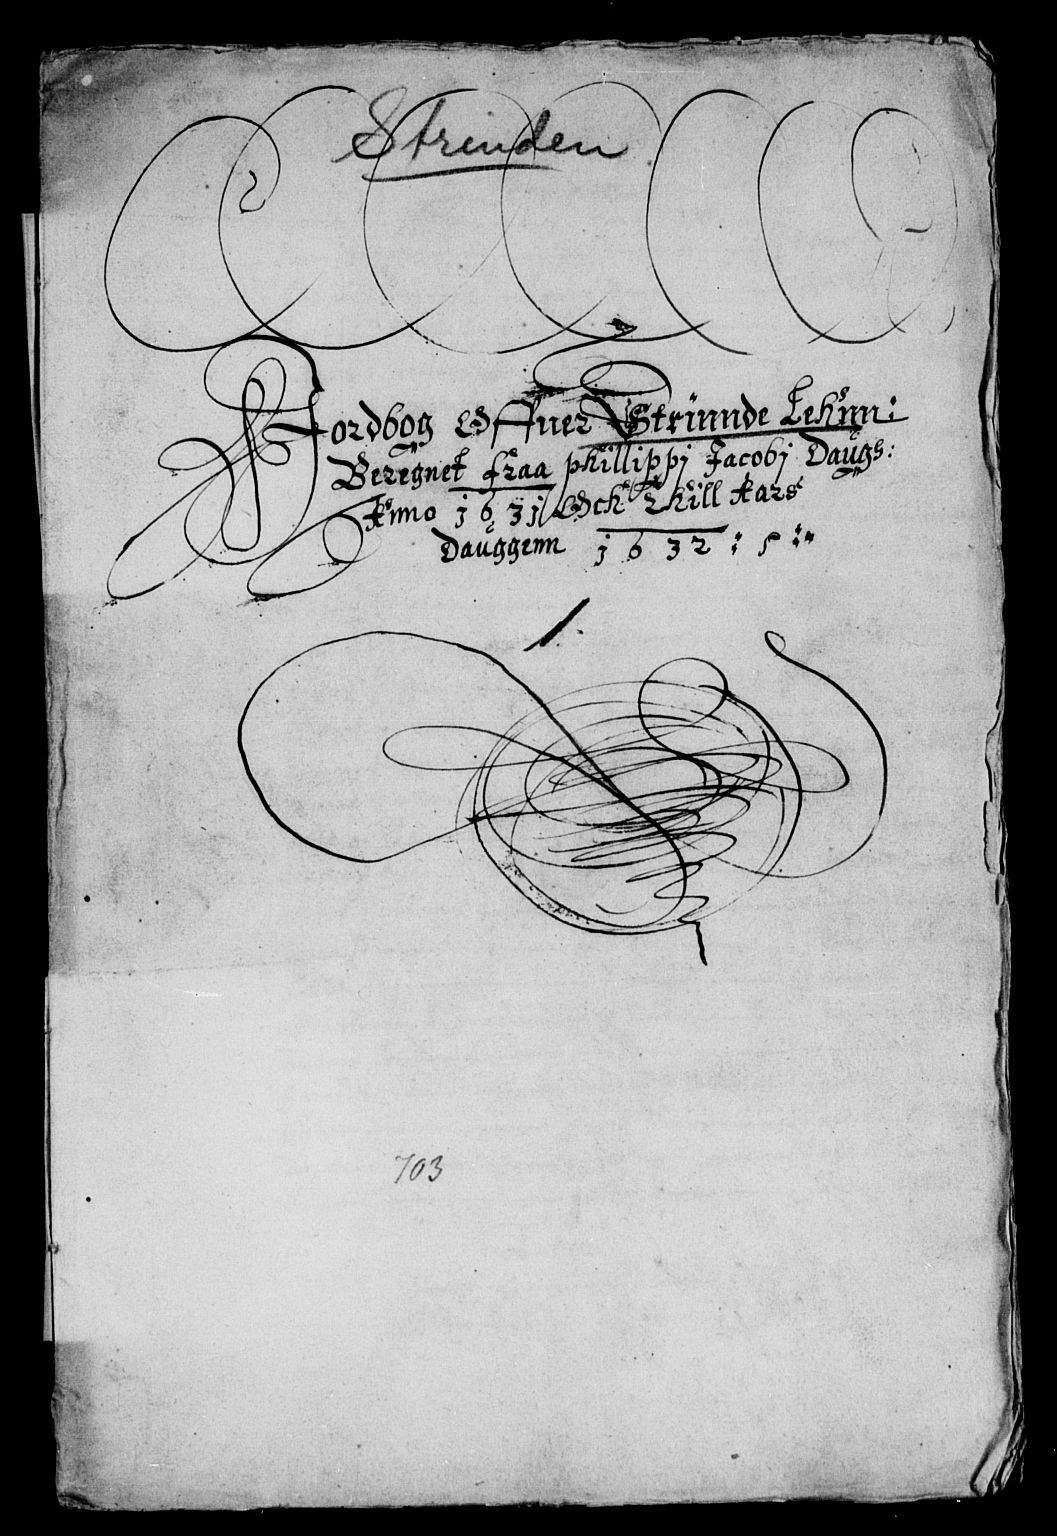 Strinden
Jordbog Offuer Strinnde Lehnn:
Beregnet fraa phillippi Jacobi Daugs:
Anno 1631 Och thill Aars
Dauggenn 1632:
1.
703